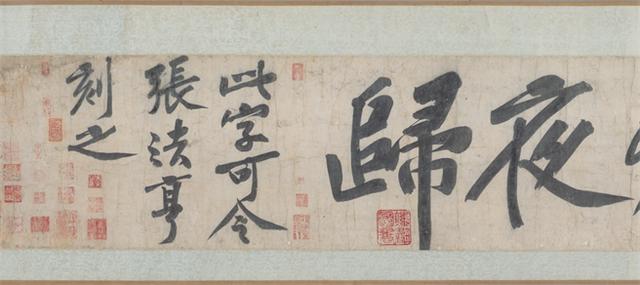 夜
歸
此字可令
張法亨
刻之